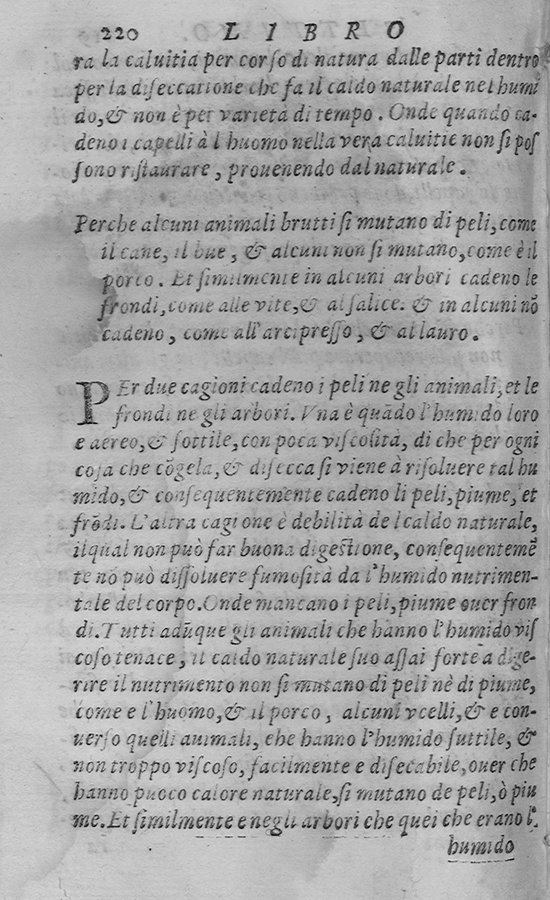 220 LIBRO
ra la caluitia per corso di natura dalle parti dentro
per la diseccatione che fa il caldo naturale nel humi
do, & non è per varietà di tempo. Onde quando ca-
deno i capelli à l huomo nella vera caluitie non si pos
sono ristaurare, prouenendo dal naturale.
Perche alcuni animali brutti si mutano di peli, come
il cane, il bue, & alcuni non si mutano, come è il
porco. Et similmente in alcuni arbori cadeno le
frondi, come alle vite, & al salice. & in alcuni nō
cadeno, come all'arcipresso, & al lauro.
PEr due cagioni cadeno i peli ne gli animali, et le
frondi ne gli arbori. Vna è quādo l'humido loro
e aereo, & sottile, con poca viscosità, di che per ogni
cosa che cōgela, & disecca si viene à risoluere tal hu
mido, & consequentemente cadeno li peli, piume, et
frōdi. L'altra cagione è debilità del caldo naturale,
ilqual non può far buona digestione, consequentemē
te nō può dissoluere fumosità da l'humido nutrimen-
tale del corpo. Onde mancano i peli, piume ouer fron
di. Tutti adūque gli animali che hanno l'humido vis
coso tenace, il caldo naturale suo assai forte a dige-
rire il nutrimento non si mutano di peli nè di piume,
come e l'huomo, & il porco, alcuni vcelli, & e con-
uerso quelli animali, che hanno l'humido suttile, &
non troppo viscoso, facilmente e disecabile, ouer che
hanno puoco calore naturale, si mutano de peli, ò piu
me. Et similmente e negli arbori che quei che erano l'
humido